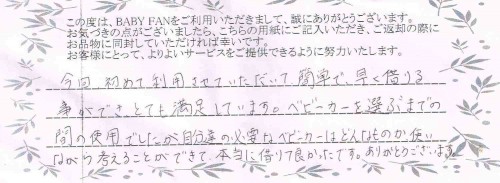 この度は、BABY FANをご利用いただきまして、誠にありがとうございます。
お気づきの点がございましたら、こちらの用紙にご記入いただき、ご返却の際に
お品物に同封していただければ幸いです。
お客様にとって、よりよいサービスをご提供できるように努力いたします。
今回、初めて利用させていただいて簡単で、早く借りる
事ができ、とても満足しています。ベビーカーを選ぶまでの
間の使用でしたが自分達の必要なベビーカーはどんなものか使い
ながら考えることができて、本当に借りて良かったです。ありがとうございます。